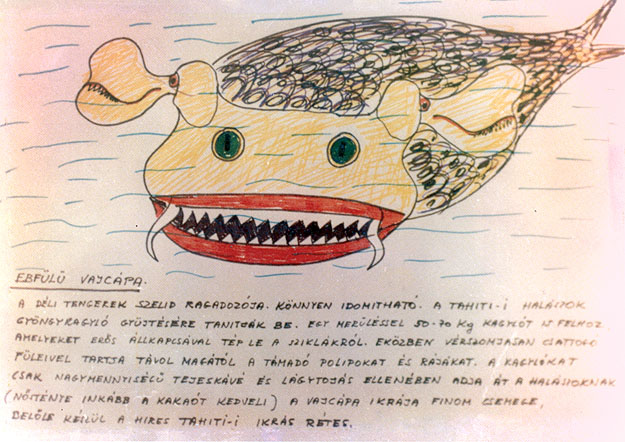 EBFÜLÜ VAJCÁPA.
A DÉLI TENGEREK SZELID RAGADOZÓJA. KÖNNYEN IDOMITHATÓ. A TAHITI-I HALÁSZOK
GYÖNGYKAGYLÓ GYÜJTÉSÉRE TANITJÁK BE. EGY MERÜLÉSSEL 50-70 Kg KAGYLÓT IS FELHOZ
AMELYEKET ERŐS ÁLLKAPCSÁVAL TÉP LE A SZIKLÁKRÓL. EKÖZBEN VÉRSZOMJASAN CSATTOGÓ
FÜLEIVEL TARTJA TÁVOL MAGÁTÓL A TÁMADÓ POLIPOKAT ÉS RÁJÁKAT. A KAGYLÓKAT
CSAK NAGYMENNYISÉGÜ TEJESKÁVÉ ÉS LÁGYTOJÁS ELLENÉBEN ADJA ÁT A HALÁSZOKNAK
(NŐSTÉNYE INKÁBB A KAKAÓT KEDVELI) A VAJCÁPA IKRÁJA FINOM CSEMEGE,
BELŐLE KÉSZÜL A HIRES TAHITI-I IKRÁS RÉTES.